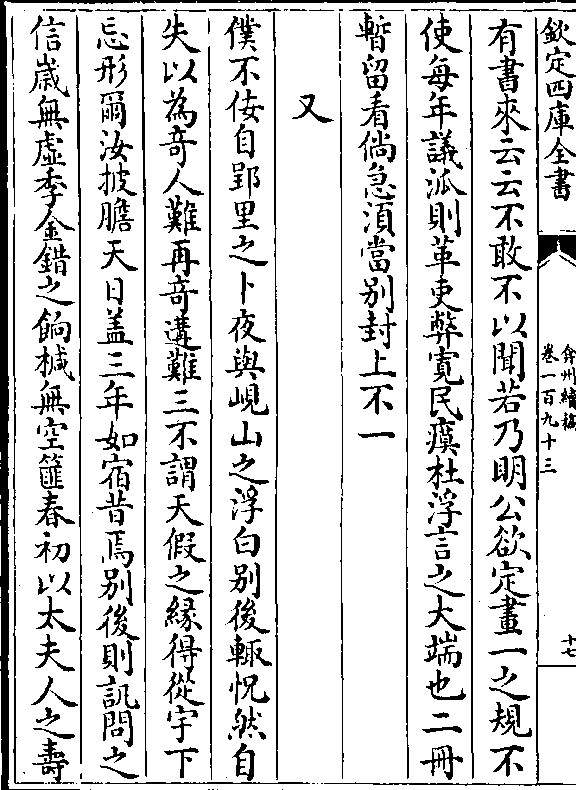 欽定四庫全書
弇州續稿
卷一百九十三
十七
有書來云云不敢不以聞若乃明公欲定畫一之規不
使每年議泒則革吏弊寛民瘼杜浮言之大端也二冊
暫留看倘急湏當别封上不一
又
僕不佞自郢里之卜夜與峴山之浮白别後輒怳然自
失以為竒人難再竒遘難三不謂天假之縁得從宇下
忘形爾汝披膽天日盖三年如宿昔焉别後則訊問之
信歳無虚季金錯之餉椷無空篚春初以太夫人之壽